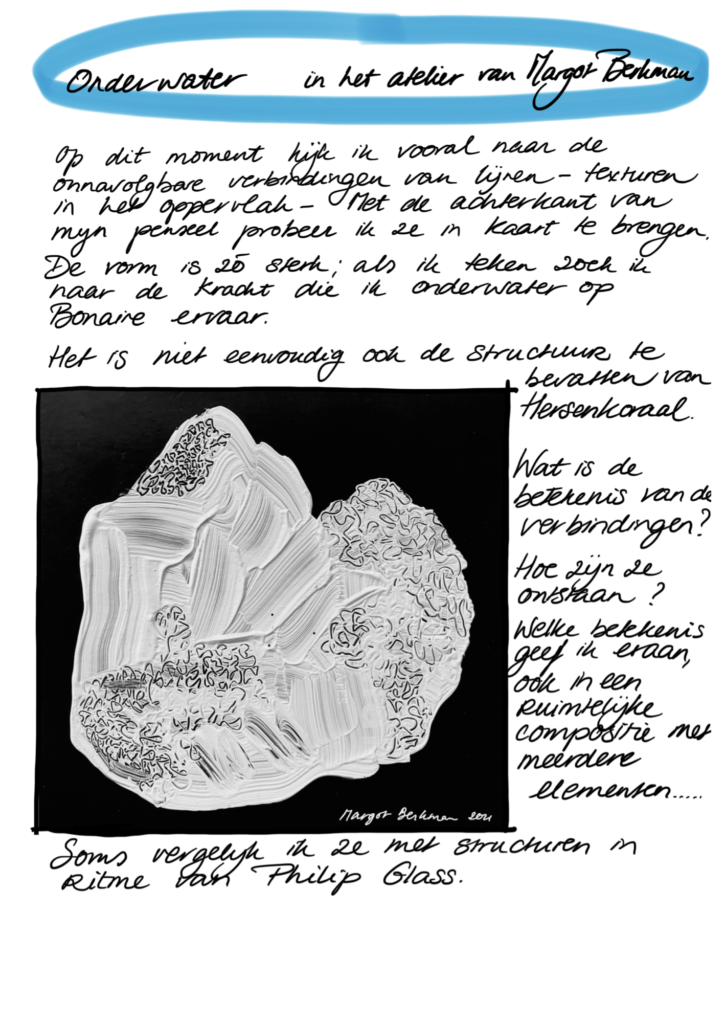 Onderwater in het atelier van Margot Berkman
Op dit moment kijk ik vooral naar de
onnavolgbare verbindingen van lijnen - texturen
in het oppervlak - Met de achterkant van
mijn penseel probeer ik ze in kaart te brengen.
De vorm is zó sterk; als ik teken zoek ik
naar de kracht die ik onderwater op
Bonaire ervaar.
Het is niet eenvoudig ook de structuur te
bevatten van
Hersenkoraal.
Wat is de
betekenis van de
verbindingen?
Hoe zijn ze
ontstaan?
Welke betekenis
geef ik eraan,
ook in een
ruimtelijke
compositie met
meerdere
elementen.....
Margot Berkman 2021
Soms vergelijk ik ze met structuren in
Ritme van Philip Glass.